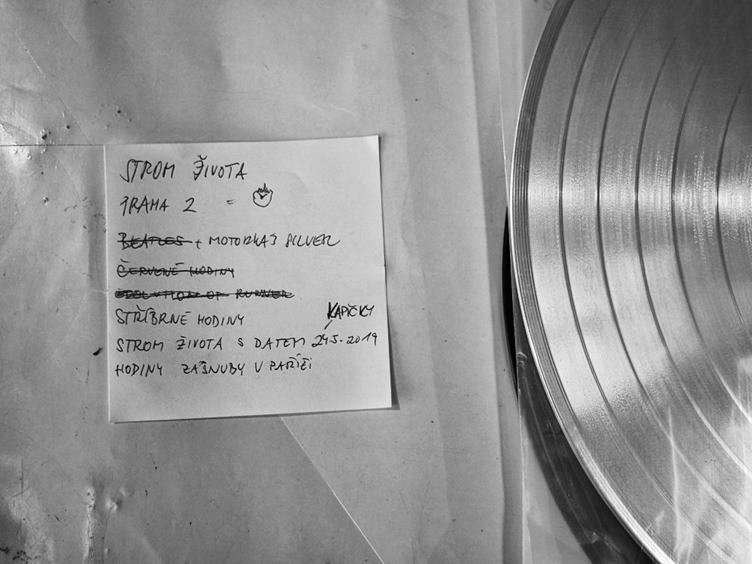 STROM ŽIVOTA
PRAHA 2 =
BEATLES + MOTORKA 3 SILVER
ČERVENÉ HODINY
EVOLUTION OF RUNNER
STŘÍBRNÉ HODINY KAPIČKY
STROM ŽIVOTA S DATEM 24.5.2019
HODINY ZÁSNUBY V PAŘÍŽI